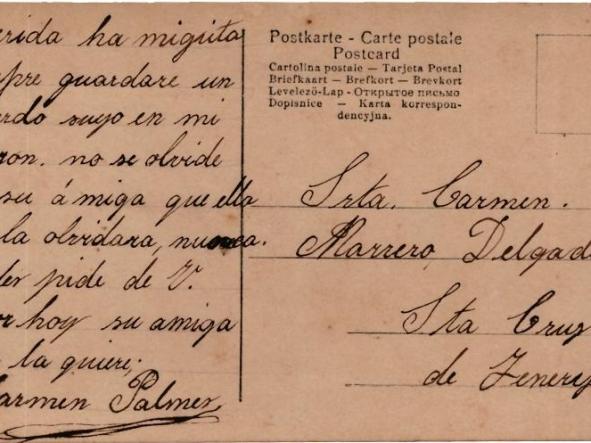 erida ha miguita
pre guardare un
erdo suyo en mi
ron. no se olvide
su á miga que ella
la olvidara, nunca.
der pide de V.
or hoy su amiga
la quiere;
armen Palmer
Postkarte - Carte postale
Postcard
Cartolina postale — Tarjeta Postal
Briefkaart — Brefkort — Brevkort
Levelező-Lap - Открытое письмо
Dopisnice — Karta korrespon-
dencyjna.
Srta. Carmen.
Marrero Delgad
Sta Cruz
de Tenerif